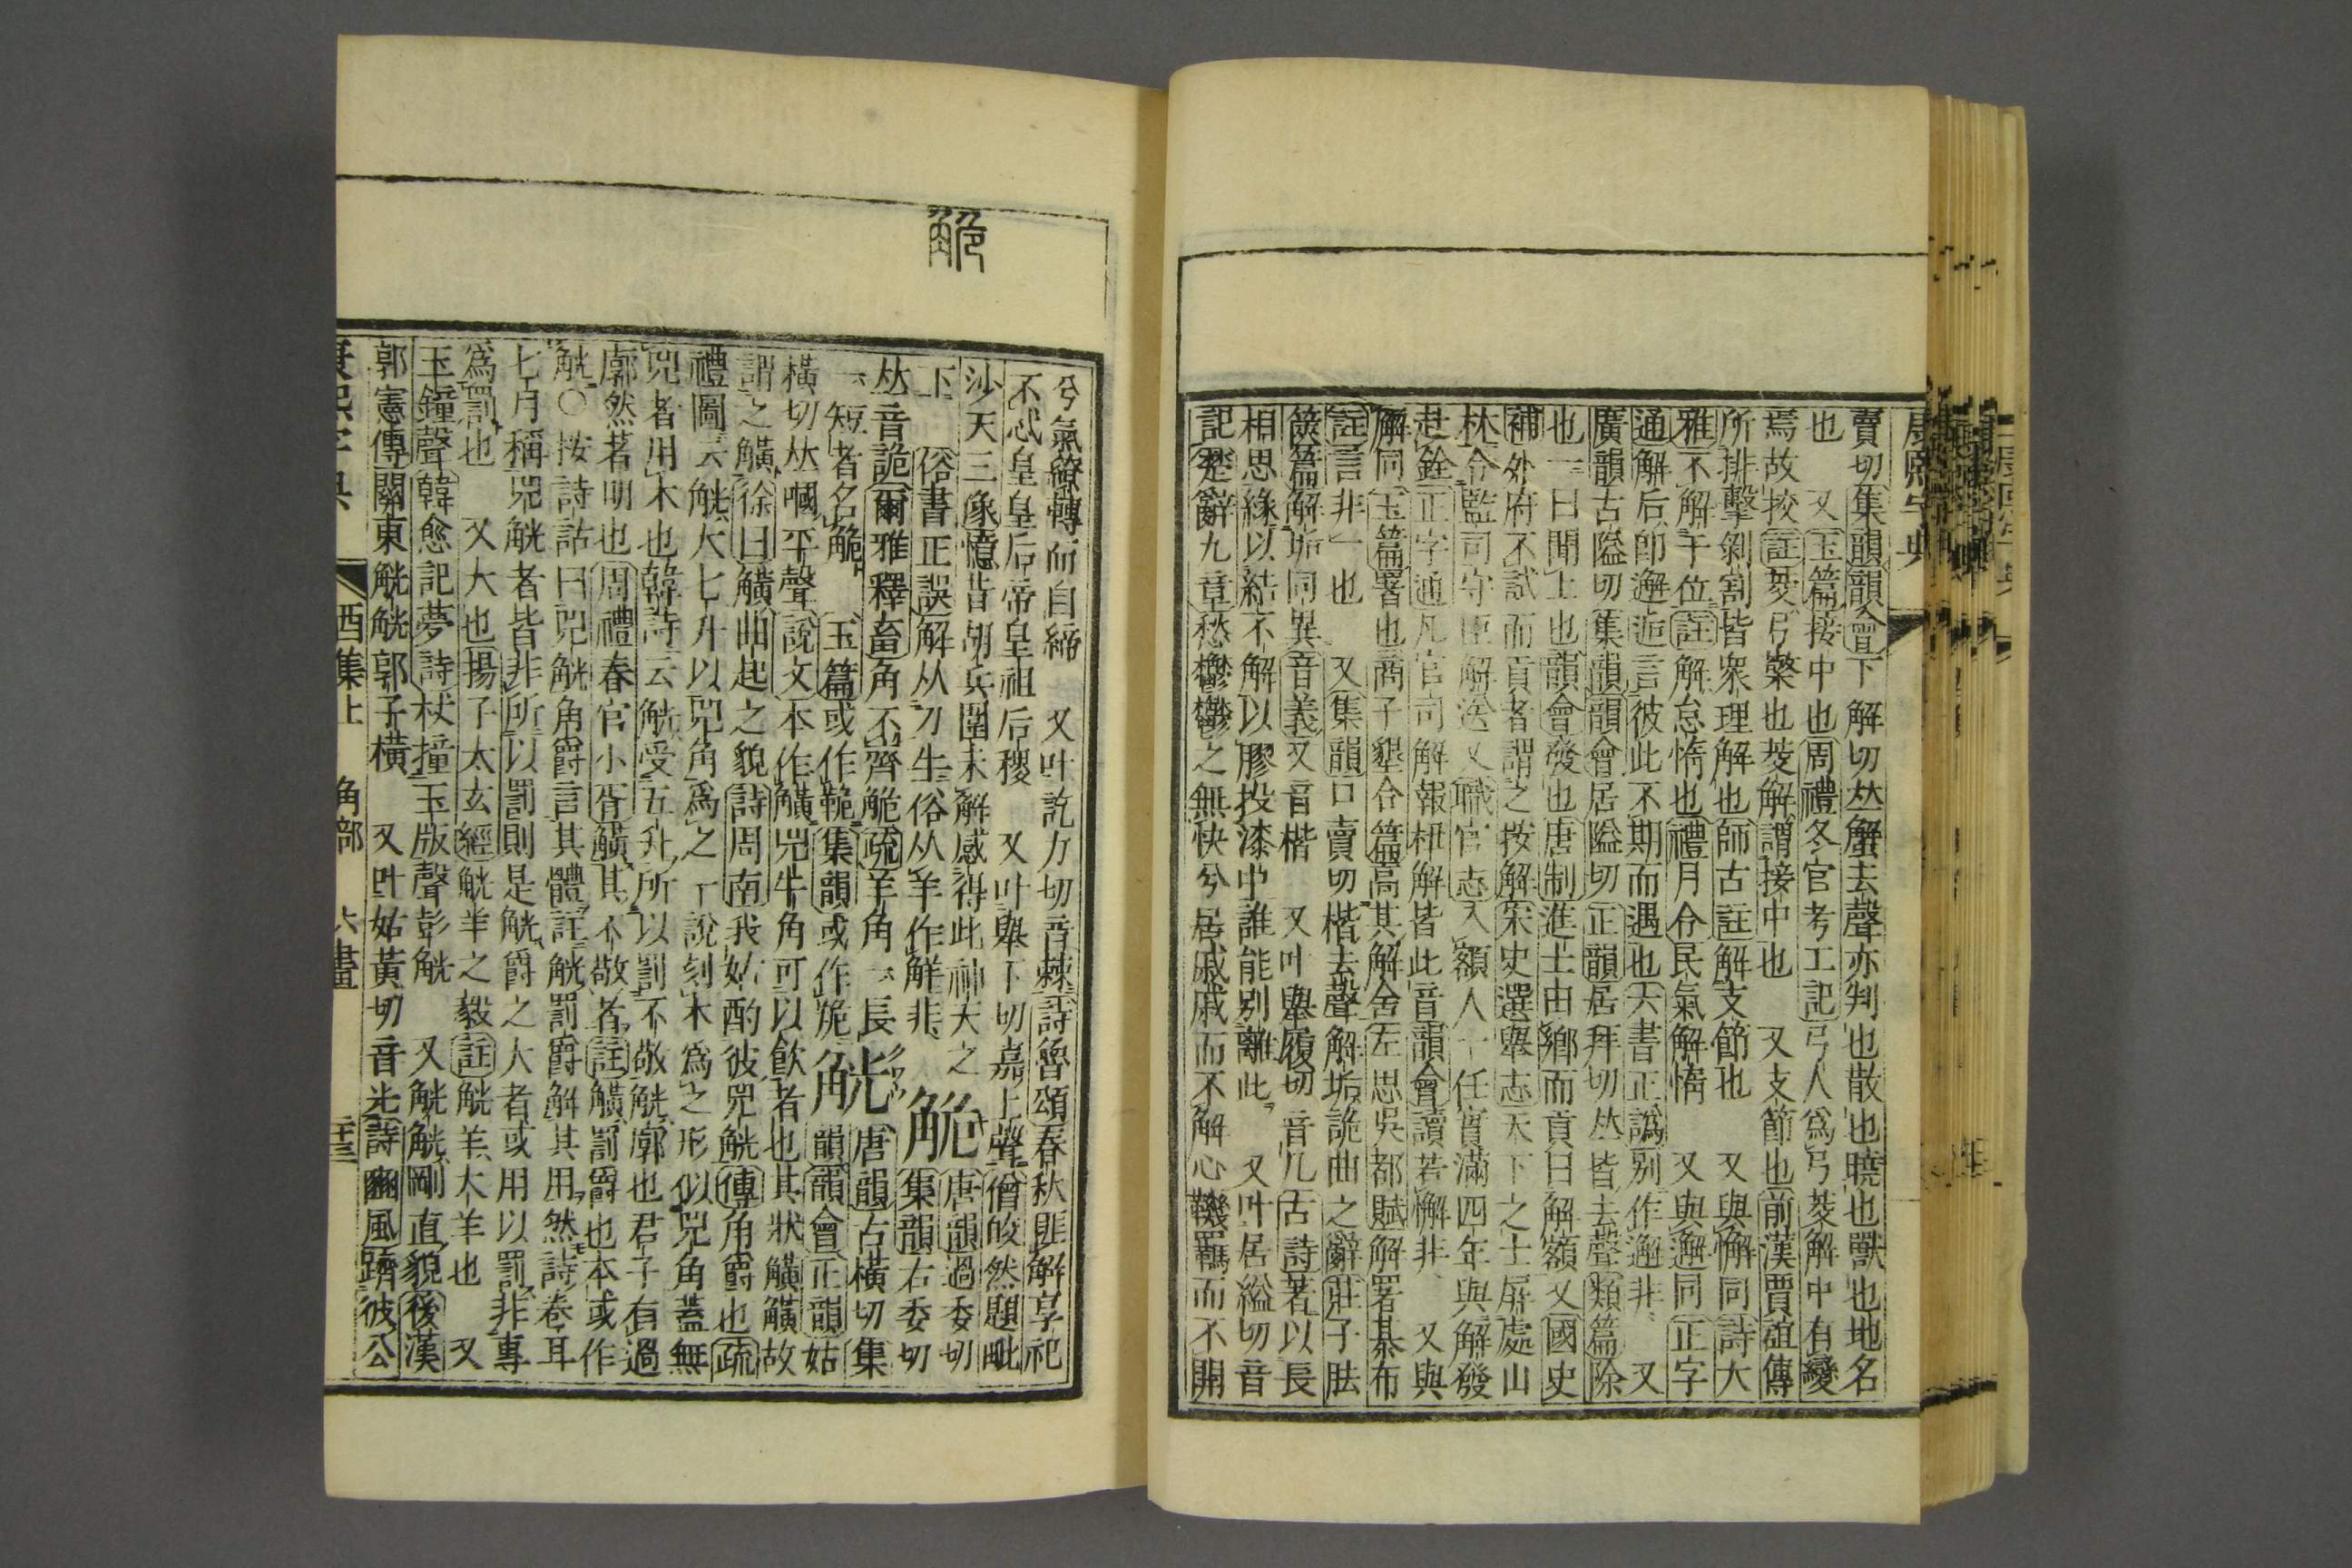 康熙字典
賣切集韻韻會下解切𠀤蟹去聲亦判也散也曉也獸也地名
也 又玉篇接中也周禮冬官考工記弓人爲弓茭解中有變
焉故挍註茭弓檠也茭解謂接中也 又支節也前漢賈誼傳
所排擊剝割皆衆理解也師古註解支節也 又與懈同詩大
雅不解于位註解怠惰也禮月令民氣解惰 又與邂同正字
通解后卽邂逅言彼此不期而遇也六書正譌別作邂非 又
廣韻古隘切集韻韻會居隘切正韻居拜切𠀤皆去聲類篇除
也一曰聞上也韻會發也唐制進士由鄉而貢曰解額又國史
補外府不試而貢者謂之按解宋史選舉志天下之士屏處山
林令監司守臣解送又職官志入額人一任實滿四年與解發
赴銓正字通凡官司解報杻解皆此音韻會讀若懈非 又與
廨同玉篇署也商子墾令篇高其解舍左思吳都賦解署棊布
註言非一也 又集韻口賣切楷去聲解垢詭曲之辭莊子胠
篋篇解垢同異音義又音楷 又叶舉履切音几古詩著以長
相思緣以結不解以膠投漆中誰能別離此 又叶居縊切音
記楚辭九章愁鬱鬱之無快兮居戚戚而不解心鞿羈而不開
兮氣繚轉而自締 又叶訖力切音棘詩魯頌春秋匪解享祀
不忒皇皇后帝皇祖后稷 又叶舉下切嘉上聲僧皎然題毗
沙天三像憶昔胡兵圍未解感得此神天之下
俗書正誤解从刀牛俗从羊作觧非
觤
觤
唐韻過委切集韻古委切
𠀤音詭爾雅釋畜角不齊觤疏羊角一長
一短者名觤 玉篇或作𩊛集韻或作㭰
觥
唐韻古橫切集韻韻會正韻姑
橫切𠀤㘯平聲說文本作觵兕牛角可以飮者也其狀觵觵故
謂之觵徐曰觵曲起之貌詩周南我姑酌彼兕觥傳角爵也疏
禮圖云觥大七升以兕角爲之一說刻木爲之形似兕角蓋無
兕者用木也韓詩云觥受五升所以罰不敬觥廓也君子有過
廓然著明也周禮春官小胥觵其不敬者註觵罰爵也本或作
觥○按詩詁曰兕觥角爵言其體註觥罰爵解其用然詩卷耳
七月稱兕觥者皆非所以罰則是觥爵之大者或用以罰非專
爲罰也 又大也揚子太玄經觥羊之毅註觥羊大羊也 又
玉鐘聲韓愈記夢詩杖撞玉版聲彭觥 又觥觥剛直貌後漢
郭憲傳關東觥觥郭子橫 又叶姑黃切音光詩豳風躋彼公
康熙字典 酉集上 角部 六畫